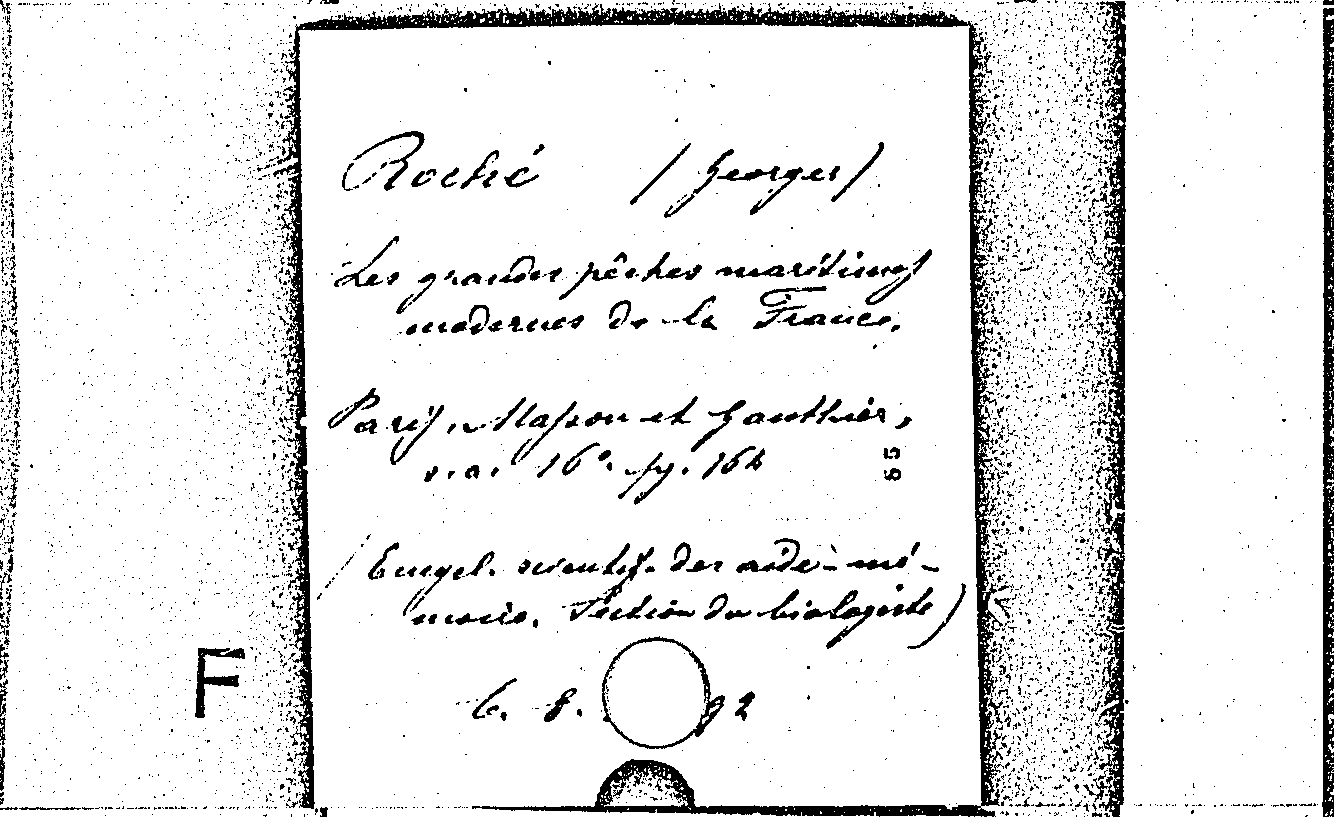 Roché (Georges)
Les grandes pêches maritimes
modernes de la France.
Paris, Masson et Gauthier,
s.a. 16°. pg.
55
Encycl. scientif. des aide-mé-
moire. Section du biologiste)
F